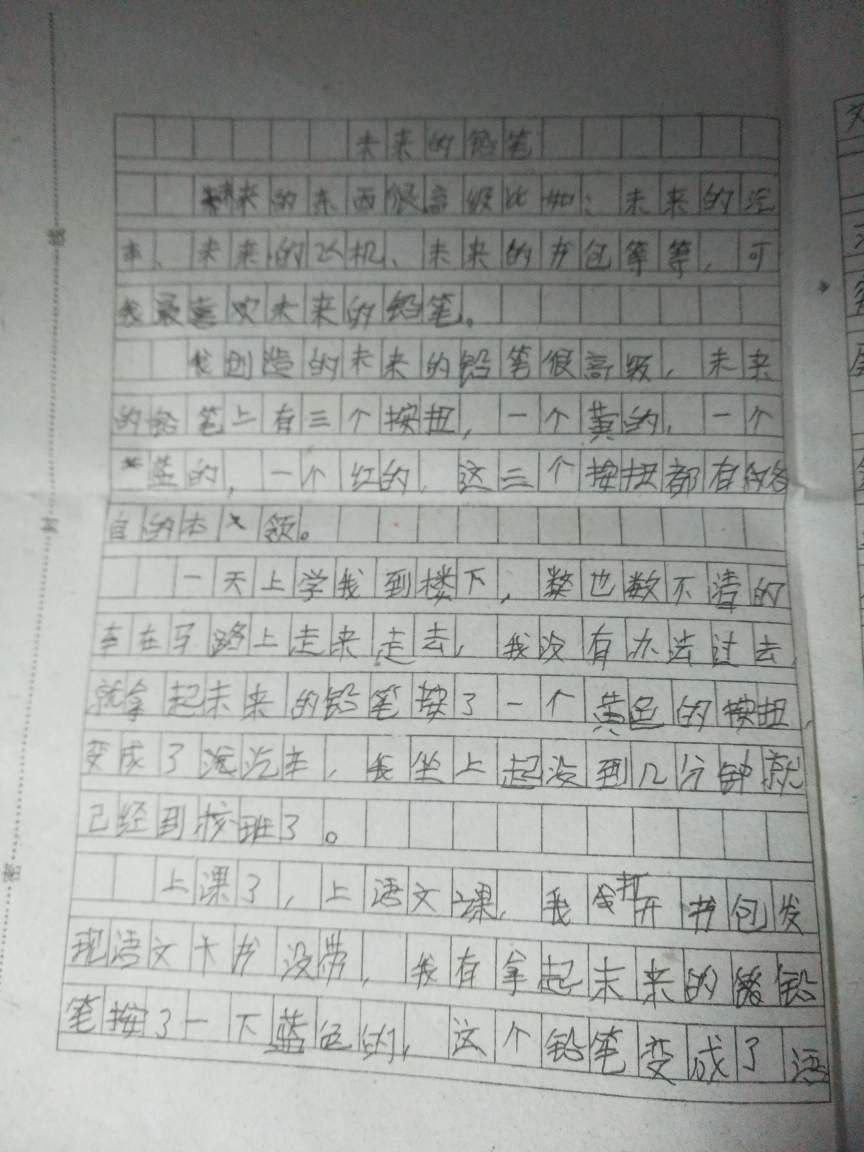 未来的铅笔
未来的东西很高级比如：未来的汽
车、未来的飞机、未来的书包等等，可
我最喜欢未来的铅笔。
我创造的未来的铅笔很高级，未来
的铅笔上有三个按扭，一个黄的，一个
蓝的，一个红的，这三个按扭都有各
自的本领。
一天上学我到楼下，数也数不清的
车在马路上走来走去，我没有办法过去，
就拿起未来的铅笔按了一个黄色的按扭，
变成了汽车，我坐上起没到几分钟就
已经到校班了。
上课了，上语文课，我打开书包发
现语文书没带，我有拿起未来的铅
笔按了一下蓝色的，这个铅笔变成了语
线
封
密